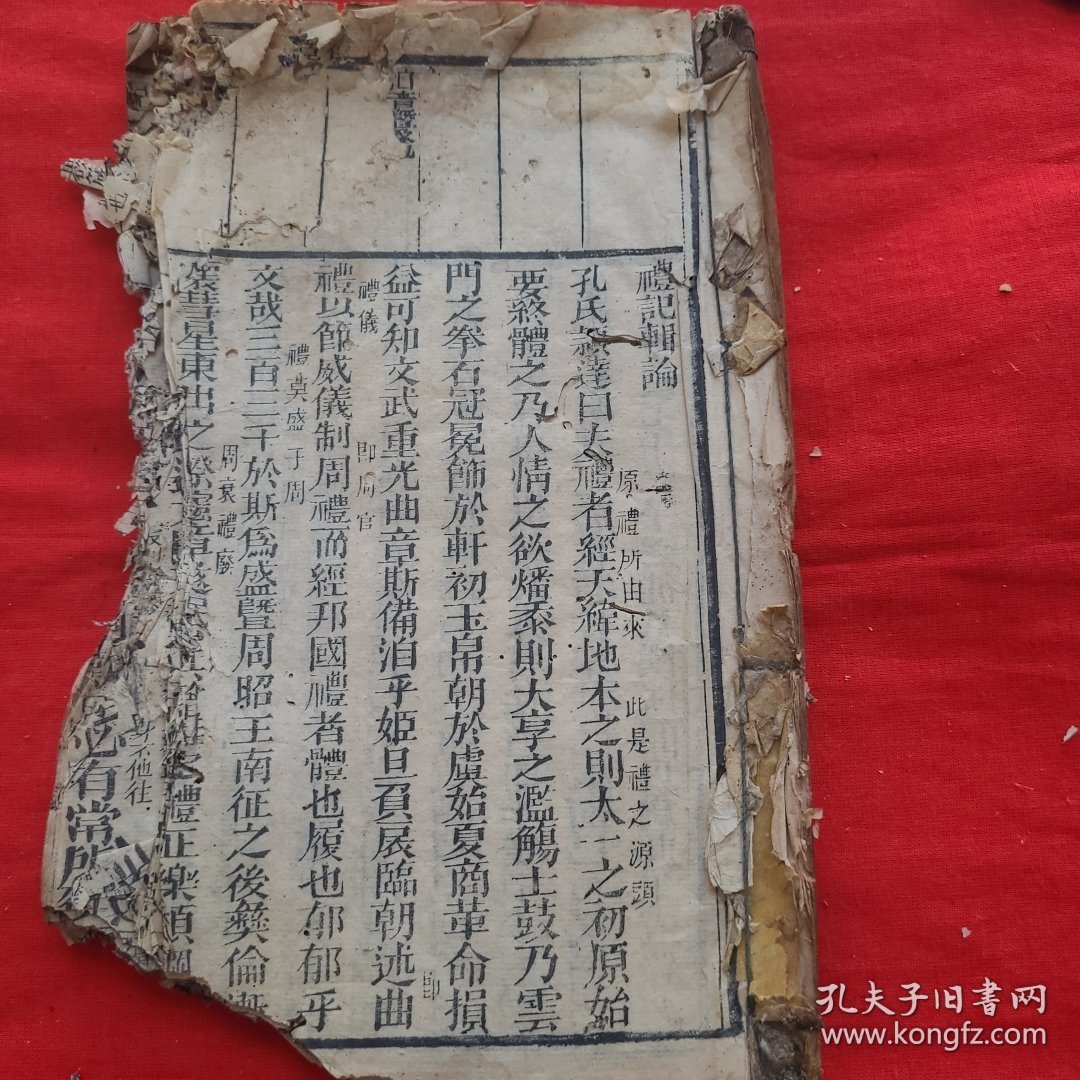 禮記輯論
孔氏穎達曰夫禮者經天緯地本之則太一之初原始
原禮所由來
此是禮之源頭
要終體之乃人情之欲燔黍則大享之濫觴土鼓乃雲
門之拳石冠冕飾於軒初玉帛朝於虞始夏商革命損
益可知文武重光曲章斯備洎乎姬旦負扆臨朝述曲
禮儀
即周官
即
禮以節威儀制周禮而經邦國禮者體也履也郁郁乎
禮莫盛于周
文哉三百三千於斯爲盛曁周昭王南征之後彜倫漸
周衰禮廢
彗星東出之
禮正樂頹綱
身不他往
有常所
孔夫子旧書网
www.kongfz.com